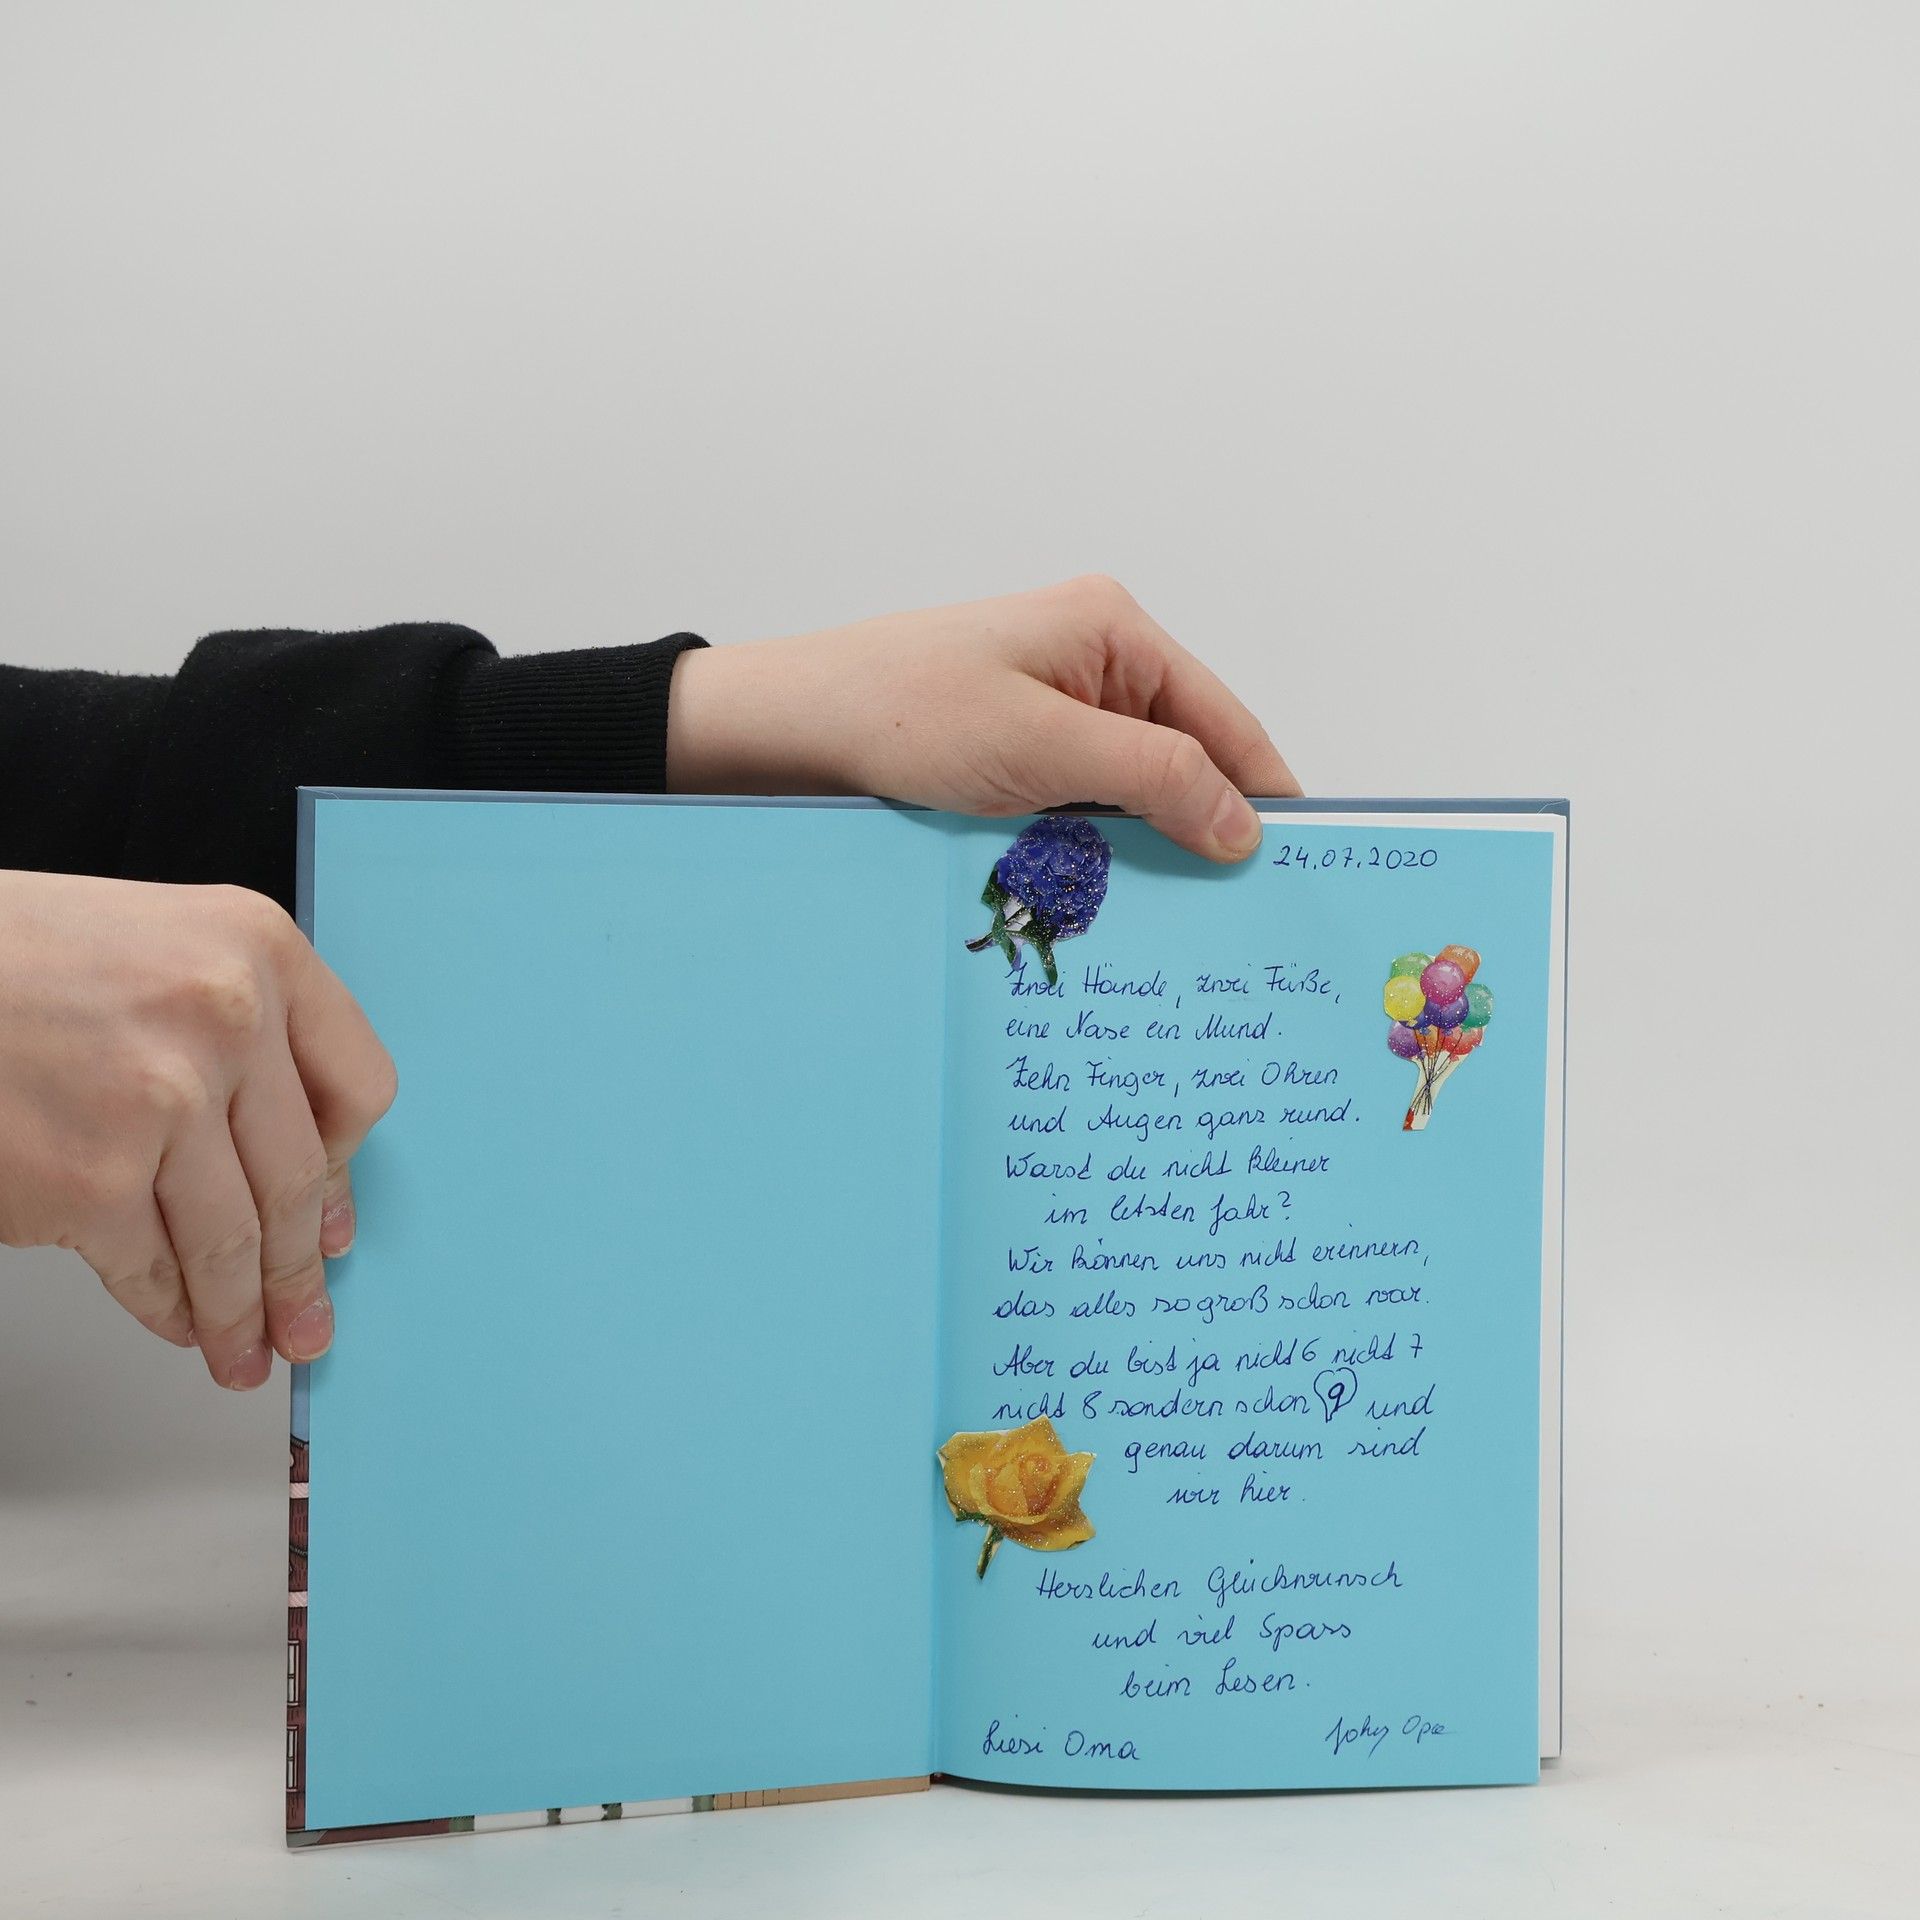 24.07.2020
Zwei Hände, zwei Füße,
eine Nase ein Mund.
Zehn Finger, zwei Ohren
und Augen ganz rund.
Warst du nicht kleiner
im letzten Jahr?
Wir können uns nicht erinnern,
das alles so groß schon war.
Aber du bist ja nicht 6 nicht 7
nicht 8 sondern schon 9 und
genau darum sind
wir hier.
Herzlichen Glückwunsch
und viel Spass
beim Lesen.
Liesi Oma
Johy Opa